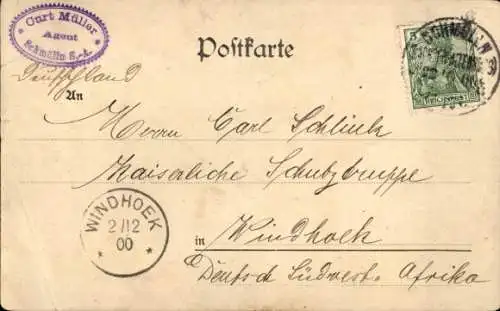 Curt Müller
Agent
Schmölln S.-A.
Postkarte
Deutschland
An
Herrn Carl Schlink
Kaiserliche Schutztruppe
in Windhoek
Deutsch Südwest-Afrika
WINDHOEK
2/12
00
5
SCHMÖLLN